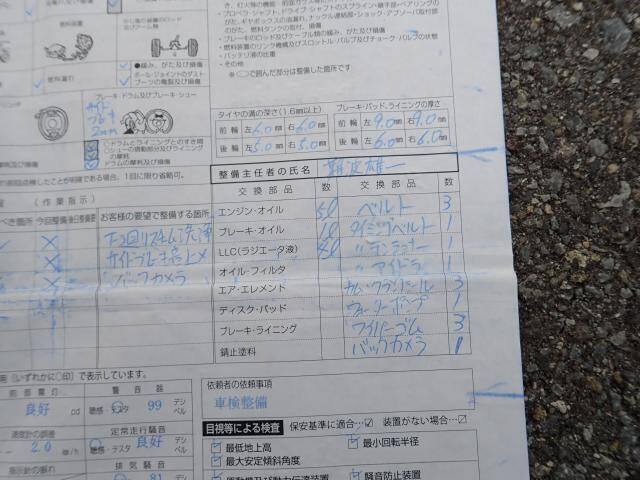 ・プロペラ・シャフト、ドライブ・シャフトのスプライン・継手部・ベアリングの
がた、ギヤボックスの油漏れ、ナックル連結部・ショック・アブソーバ取付部
のがた、燃料タンクの取付、損傷
・ブレーキのロッド及びケーブル類の緩み、がた及び損傷
・燃料装置のリンク機構及びスロットル・バルブ及びチョーク・バルブの状態
・バッテリ液の比重
・その他
※○で囲んだ部分は整備した箇所です
●緩み、がた及び損傷
ボール・ジョイントのダスト
ブーツの亀裂及び損傷
燃料装置
燃料漏れ
ブレーキ・ドラム及びブレーキ・シュー
サイド
2mm
○ドラムとライニングとのすき間
○シューの摺動部分及びライニング
の摩耗
ドラムの摩耗及び損傷
タイヤの溝の深さ(1.6mm以上)
前輪 左 6.0 mm 右 6.0 mm
後輪 左 5.0 mm 右 5.0 mm
ブレーキ・パッド、ライニングの厚さ
前輪 左 9.0 mm 右 9.0 mm
後輪 左 6.0 mm 右 6.0 mm
整備主任者の氏名 難波雄一
交換部品 数 交換部品 数
エンジン・オイル ベルト 3
ブレーキ・オイル タイミングベルト 1
LLC(ラジエータ液) 〃テンショナー 1
オイル・フィルタ 〃アイドラ 1
エア・エレメント カム・クランクシール 3
ディスク・パッド ウォーターポンプ 1
ブレーキ・ライニング ワイパーゴム 3
錆止塗料 バックカメラ 1
(作業指示)
今回整備
お客様の要望で整備する箇所
下回りスチーム洗浄
サイドブレーキ引上メ
バックカメラ
(いずれかに○印)で表示しています。
良好 cd
警音器
聴感・テスタ 99 デシベル
定常走行騒音
聴感・テスタ 良好 デシベル
2.0 km/h
排気騒音
依頼者の依頼事項
車検整備
目視等による検査 保安基準に適合…☑ 装置がない場合…
☑ 最低地上高 ☑ 最小回転半径
☑ 最大安定傾斜角度
騒音防止装置